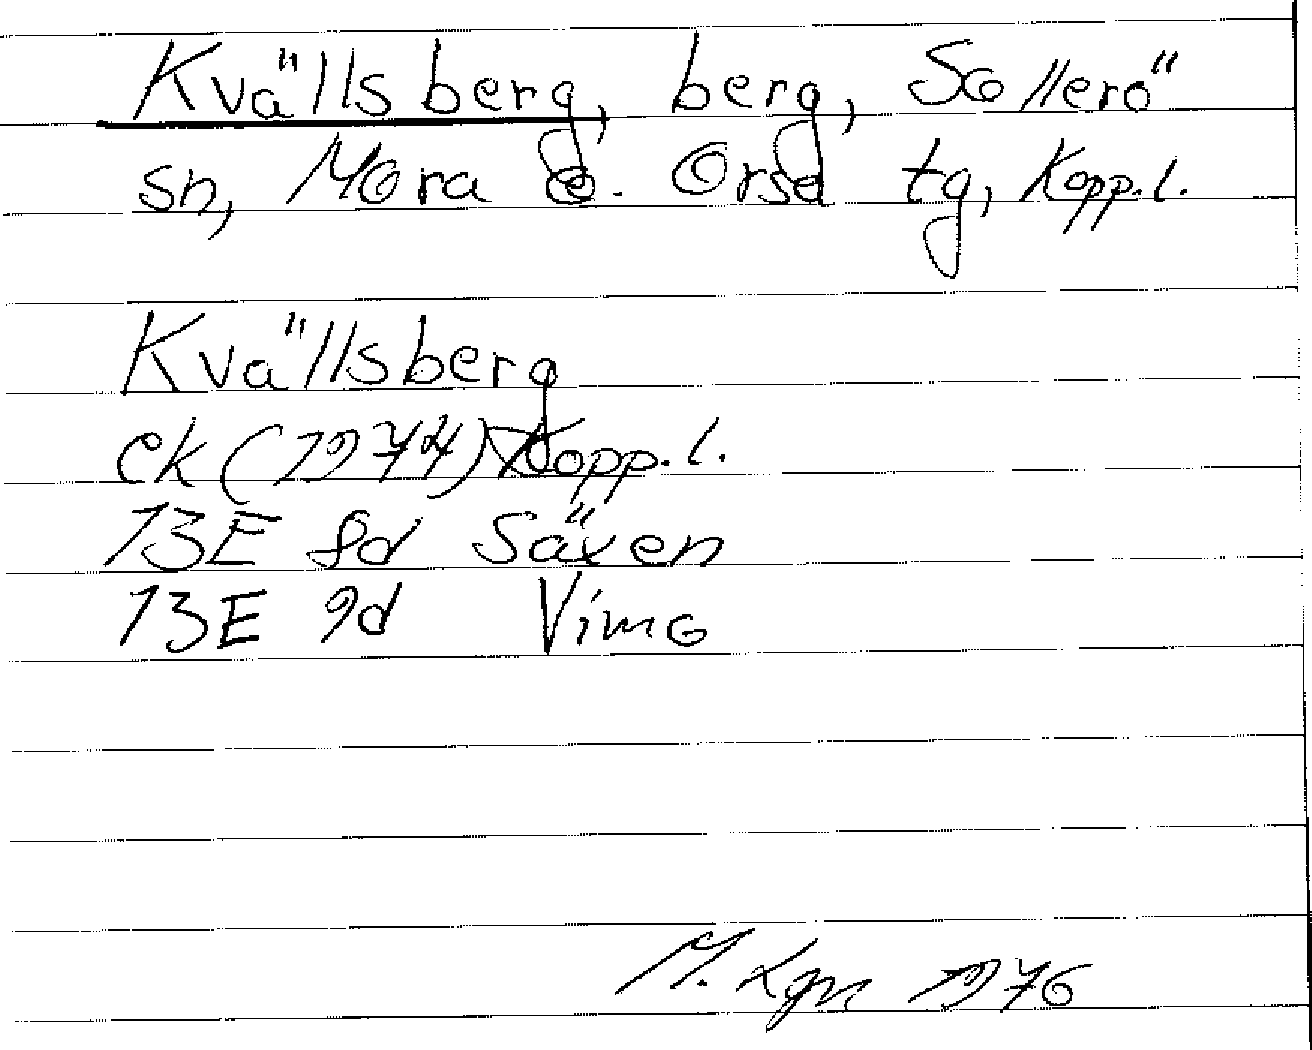 Kvällsberg, berg, Sollerö
sn, Mora o. Orsa tg, Kopp.l.
Kvällsberg
ek (1974) Kopp.l.
13E 8d Säxen
13E 9d Vimo
M. Lgn 1976